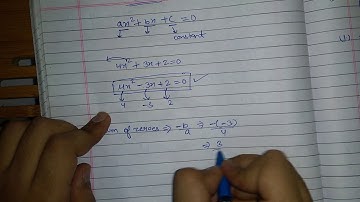 ax² + bx + c = 0
constant
4x² - 3x + 2 = 0
4x² - 3x + 2 = 0 ✓
4 -3 2
of zeroes ⇒ -b/a ⇒ -(-3)/4
⇒ 3